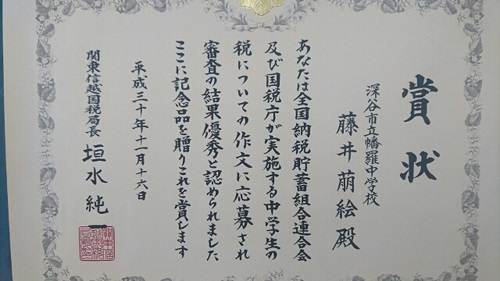 賞状
深谷市立幡羅中学校
藤井萠絵殿
あなたは全国納税貯蓄組合連合会
及び国税庁が実施する中学生の
税についての作文に応募され
審査の結果優秀と認められました
ここに記念品を贈りこれを賞します
平成三十年十一月十六日
関東信越国税局長 垣水純一